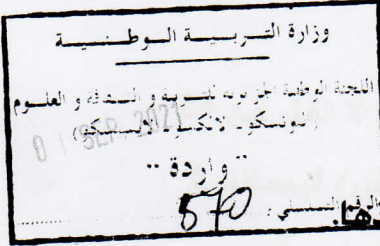 وزارة التربية الوطنية
اللجنة الوطنية الجزائرية للتربية و الثقافة و العلوم
(اليونسكو- الالكسو- الايسيسكو)
01 SEP. 2021
" واردة "
الرقم التسلسلي : 570